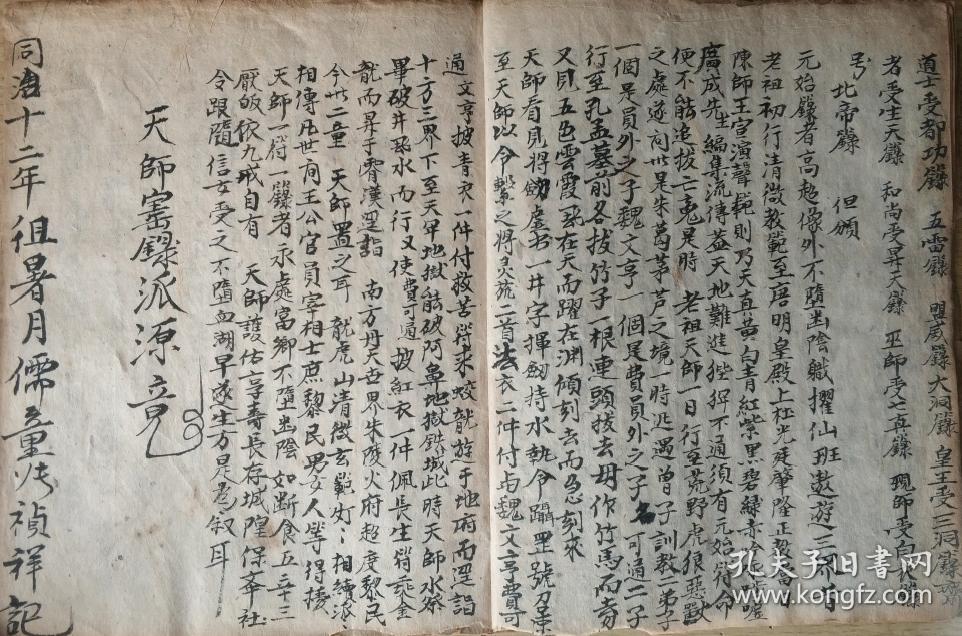 道士受都功籙 五雷籙 盟威籙 大洞籙 皇王受三洞籙 齋
者受生天籙 和尚受昇天籙 巫師受七真籙 現師受
号 北帝籙 但頒
元始籙者高超像外不墮幽陰職擢仙班遨遊三界昔
老祖初行清微教範至唐明皇殿上杜光廷肇隆正教
陳師王宣演聲範則乃天真黃白青紅紫黑碧綠赤
廣成先生編集流傳蓋天地難進 不通須有元始符命
便不能追拔亡魂是時 老祖天師一日行至荒野虎狼惡獸
之處遂向此是朱葛茅芦之境一時迅遇曾子訓教二弟子
一個是員外之子魏文亨一個是費員外之子名可通二子
行至孔孟墓前各拔竹子一根連頭拔去毋作竹馬而
又見五色雲霞飛在天而躍在渊傾刻去而忽刻來
天師看見將劒虚书一井字揮劒持水執令躡罡號
至天師以令擊之將灵 二首法衣二件付与魏文亨費可
通 文亨披青衣一件付救苦符来蛟龍遊于地府而逕詣
十方三界下至天牢地獄能破阿鼻地獄鉄城此時天師水
畢破井恐水而行又使費可通披紅衣一件佩長生符乘金
龍而昇于霄漢逕詣 南方丹天世界朱陵火府超度黎民
今此二童 天師置之耳 龍虎山清微玄範 相續派
相傳凡世有王公官員宰相士庶黎民男女人等得接
天師一符一籙者永處富鄉不墮幽陰 如斷食五 三
厭皈依九戒自有 天師護佑享壽長存城隍保奉社
令跟隨信女受之不墮血湖早逐生方是為叙耳
天師宻籙派源竟
同治十二年徂暑月儒童 禎祥記
孔夫子旧书网
www.kongfz.com